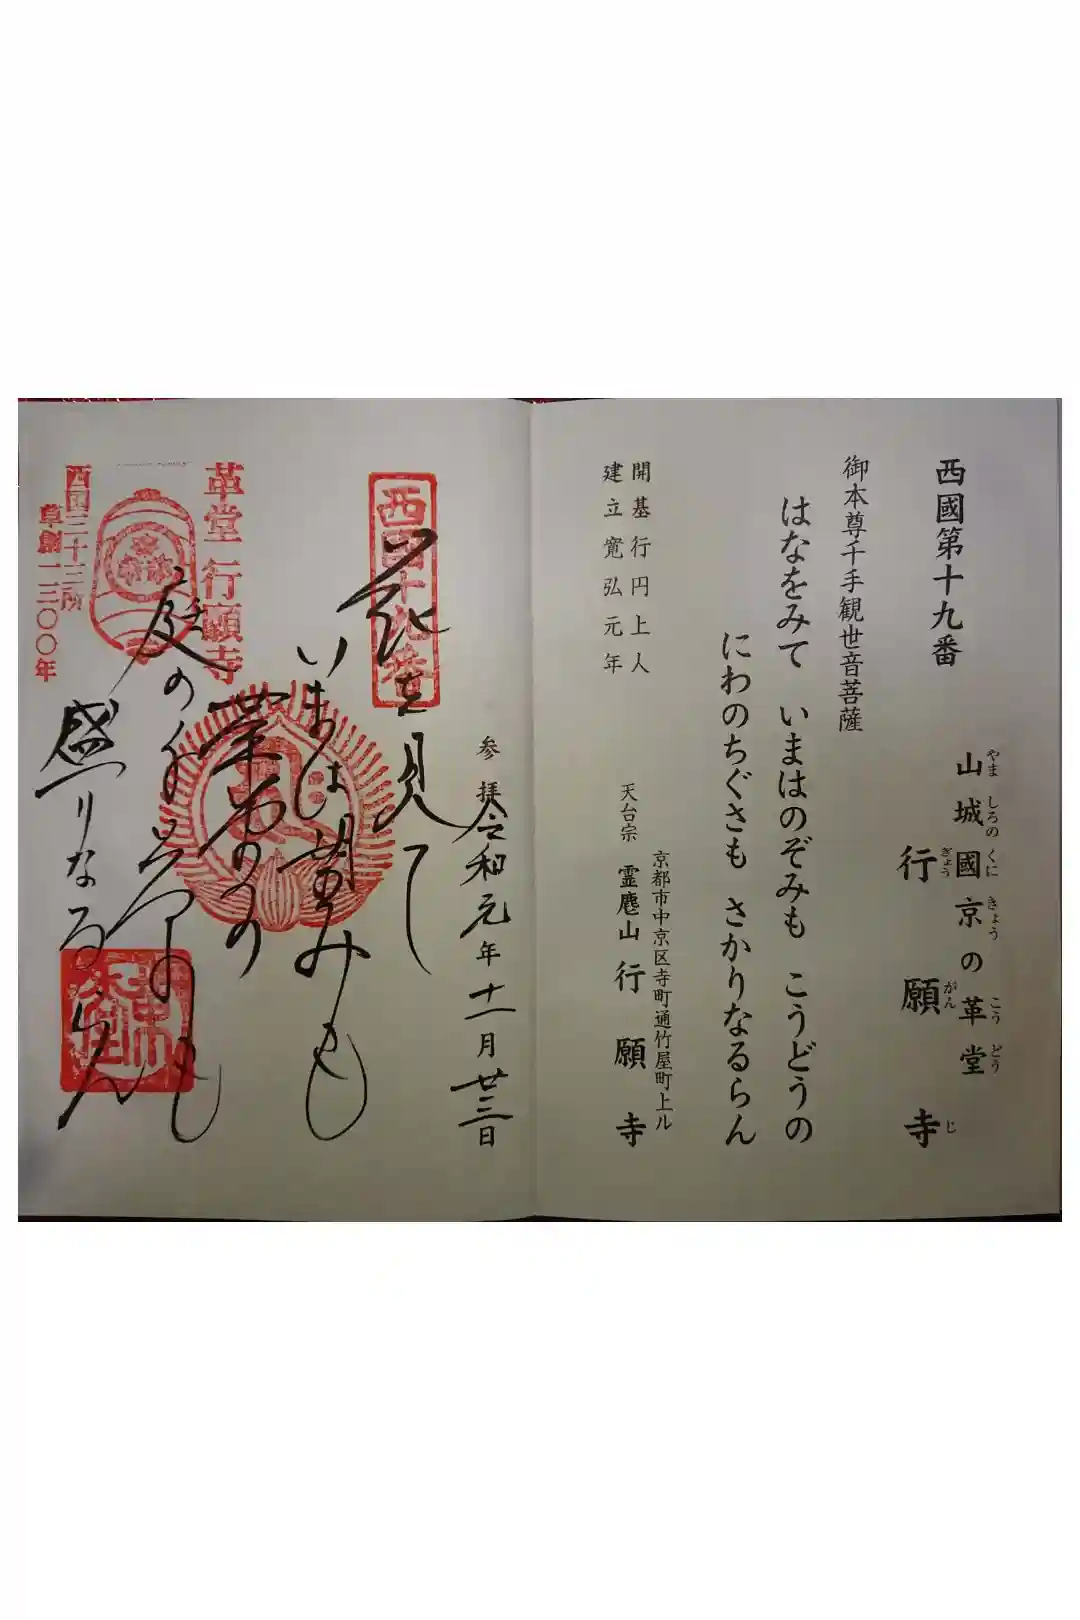 西國第十九番
山城國京の革堂
やましろのくにきょうこうどう
行願寺
ぎょうがんじ
御本尊千手観世音菩薩
はなをみて いまはのぞみも こうどうの
にわのちぐさも さかりなるらん
開基行円上人
建立寛弘元年
京都市中京区寺町通竹屋町上ル
天台宗 霊麀山行願寺
参拝令和元年十一月廿三日
西国十九番
花を見て
いまは望みも
革堂の
庭の千草も
盛りなるらん
革堂 行願寺
西国三十三所
草創一三〇〇年